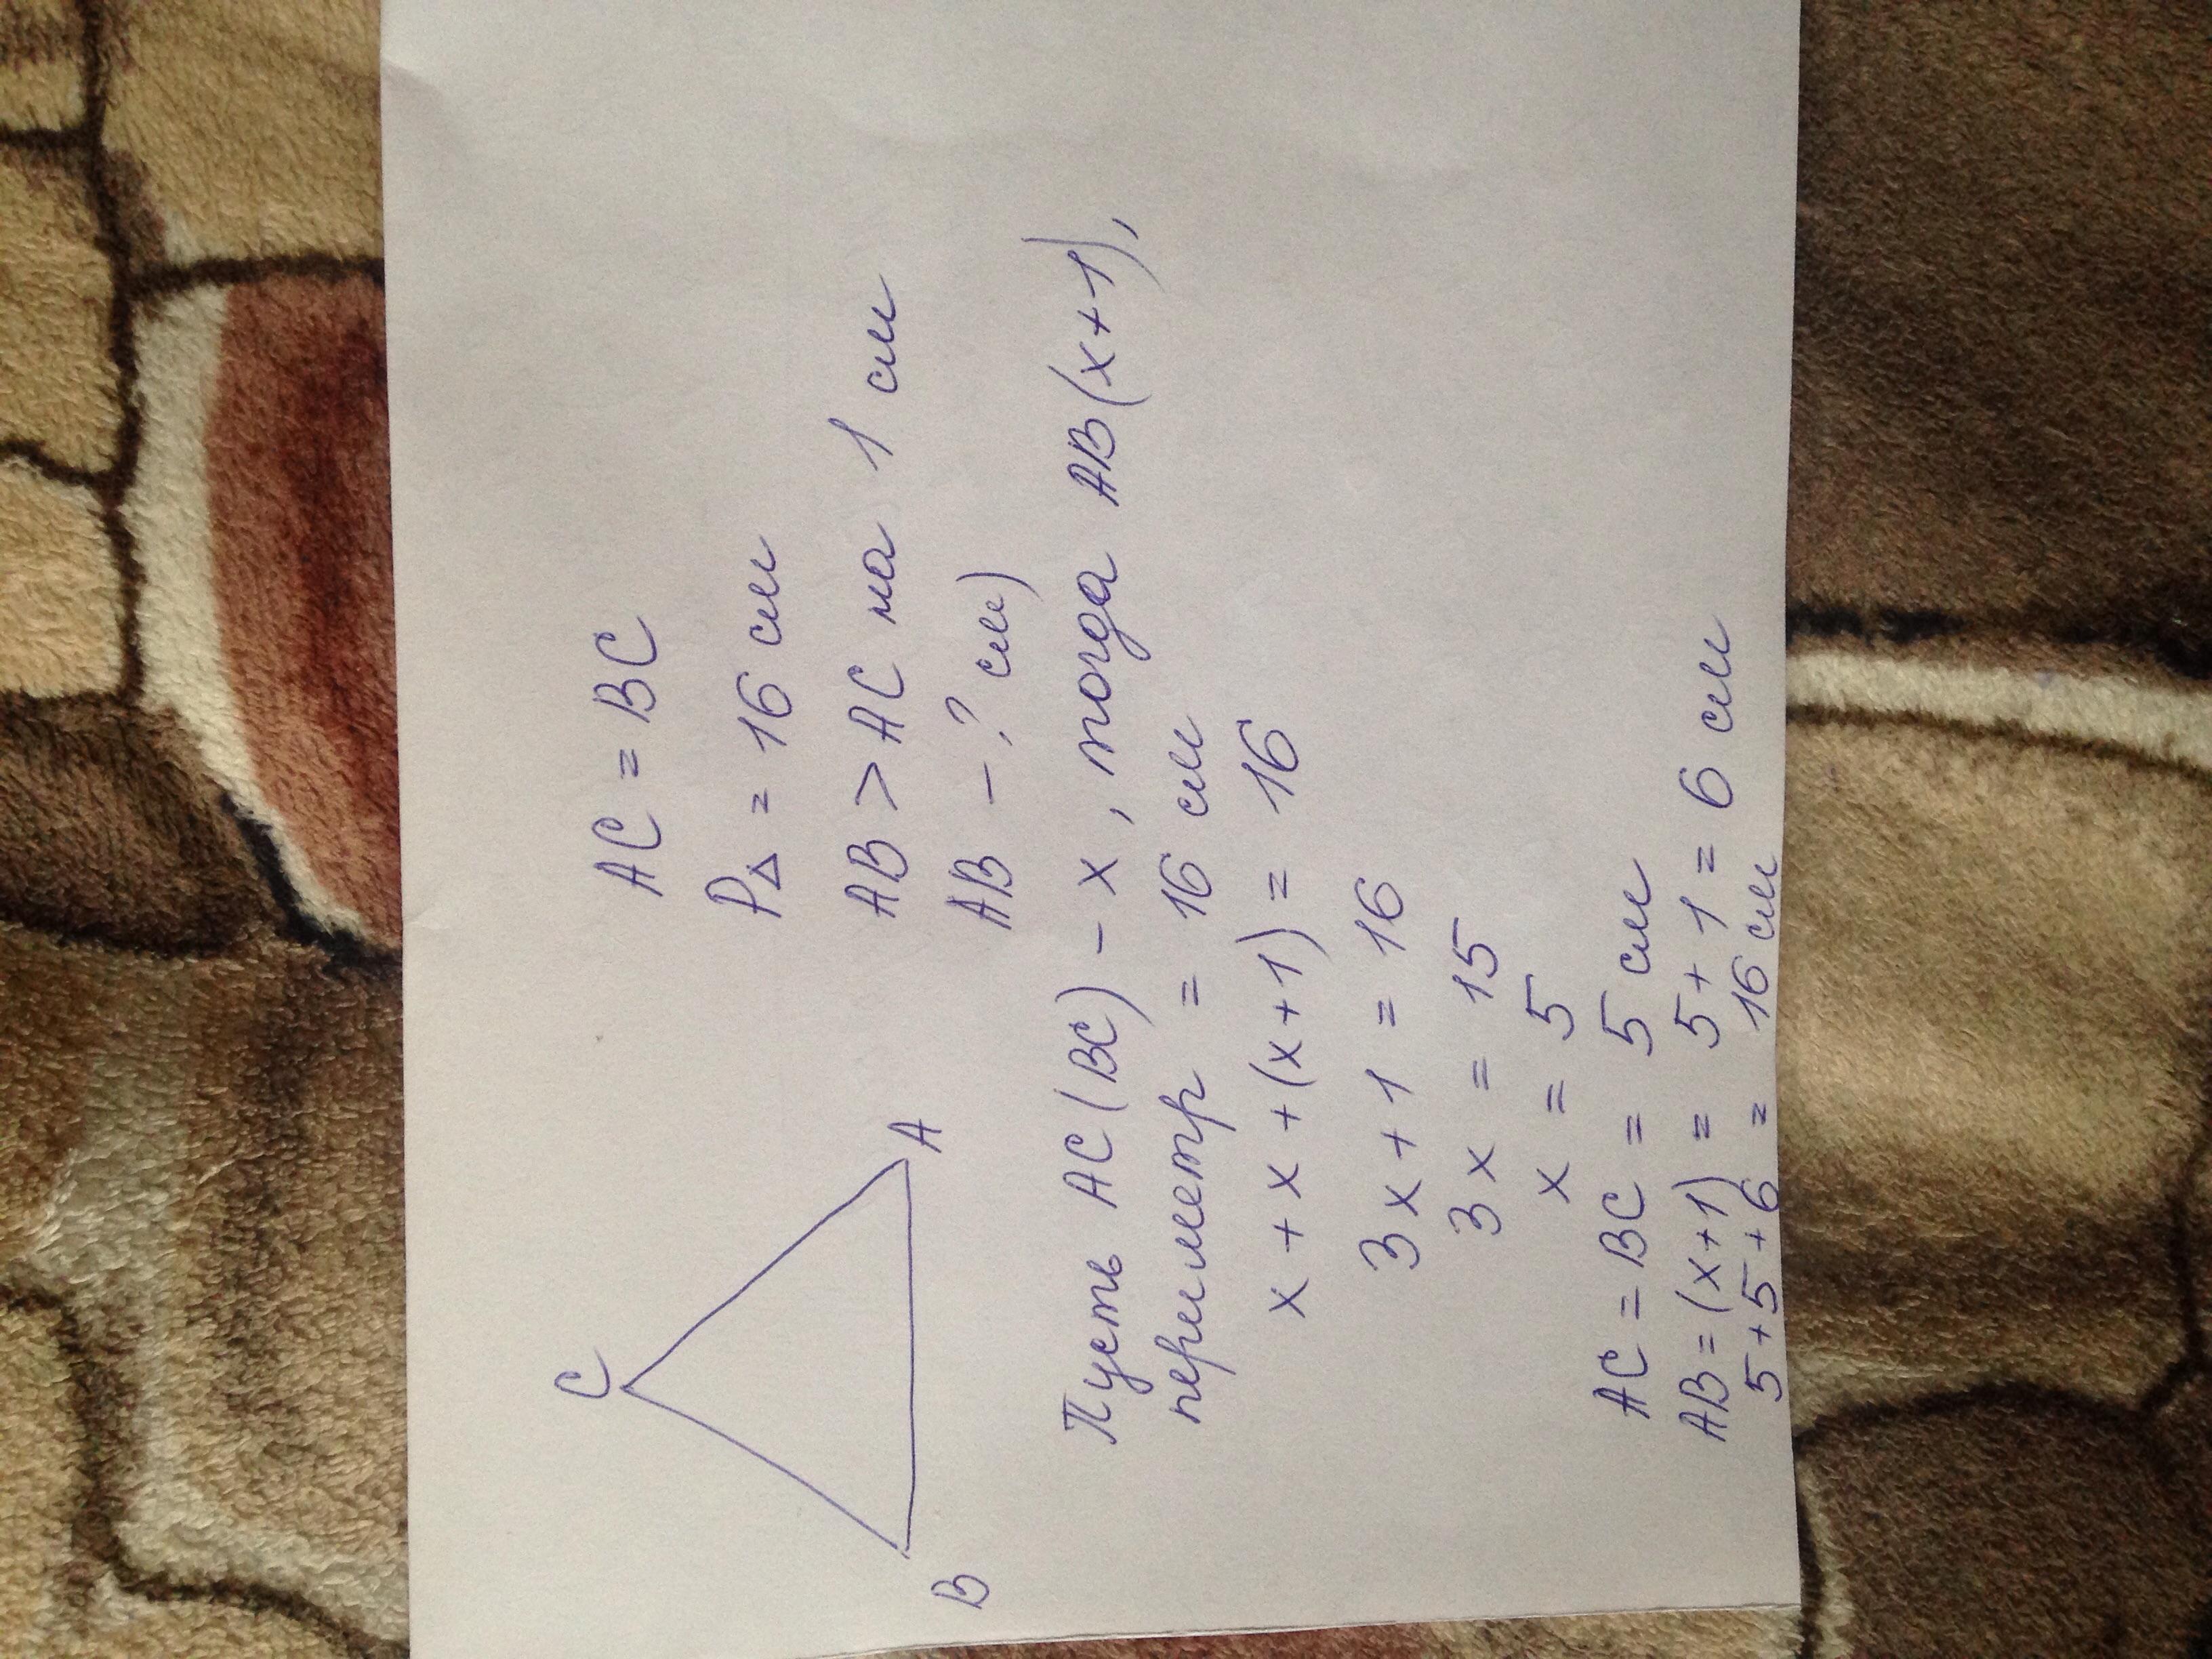 C
B
A
AC = BC
P△ = 16 см
AB > AC на 1 см
AB - ? см)
Пусть AC(BC) - x, тогда AB(x+1),
периметр = 16 см
x + x + (x+1) = 16
3x + 1 = 16
3x = 15
x = 5
AC = BC = 5 см
AB = (x+1) = 5+1 = 6 см
5+5+6 = 16 см